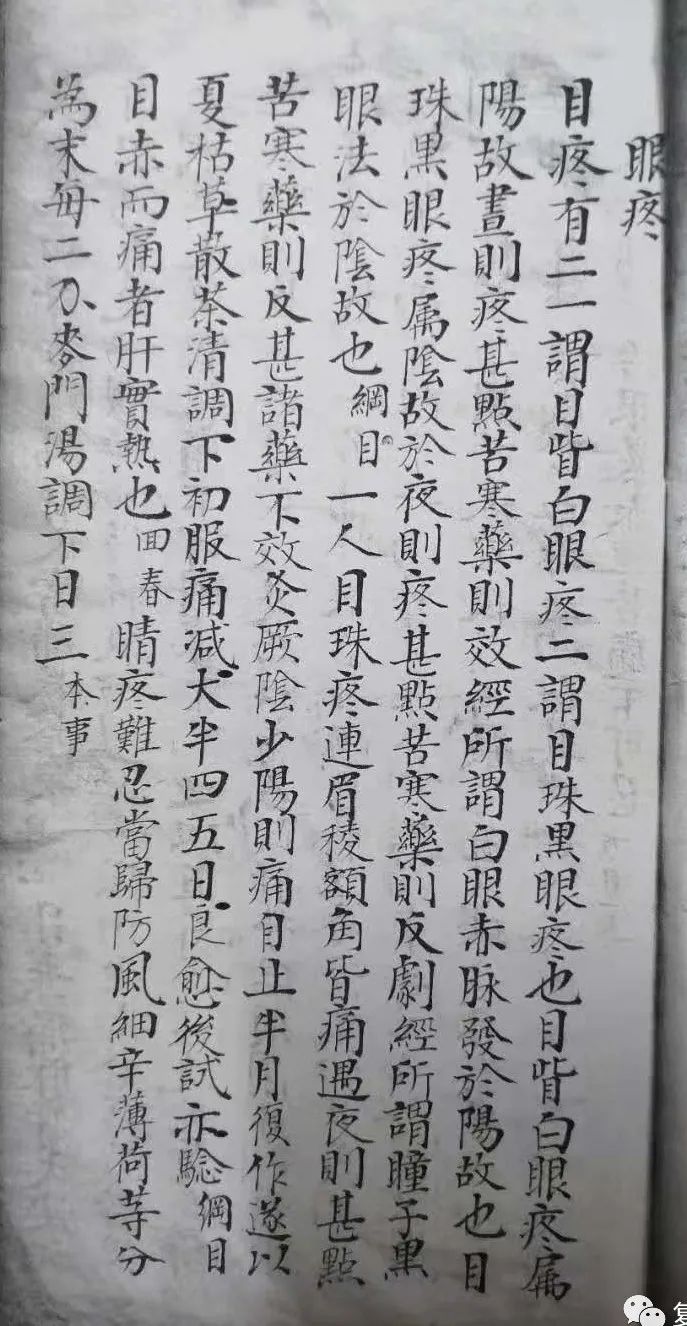 眼疼
目疼有二一謂目眥白眼疼二謂目珠黑眼疼也目眥白眼疼属
陽故晝則疼甚點苦寒藥則效經所謂白眼赤脉發於陽故也目
珠黑眼疼属陰故於夜則疼甚點苦寒藥則反劇經所謂瞳子黒
眼法於陰故也綱目一人目珠疼連眉稜額角皆痛遇夜則甚點
苦寒藥則反甚諸藥不效灸厥陰少陽則痛自止半月復作遂以
夏枯草散茶清調下初服痛减大半四五日良愈後試亦驗綱目
目赤而痛者肝實熱也回春睛疼難忍當歸防風細辛薄荷等分
為末每二刀麥門湯調下日三本事
复